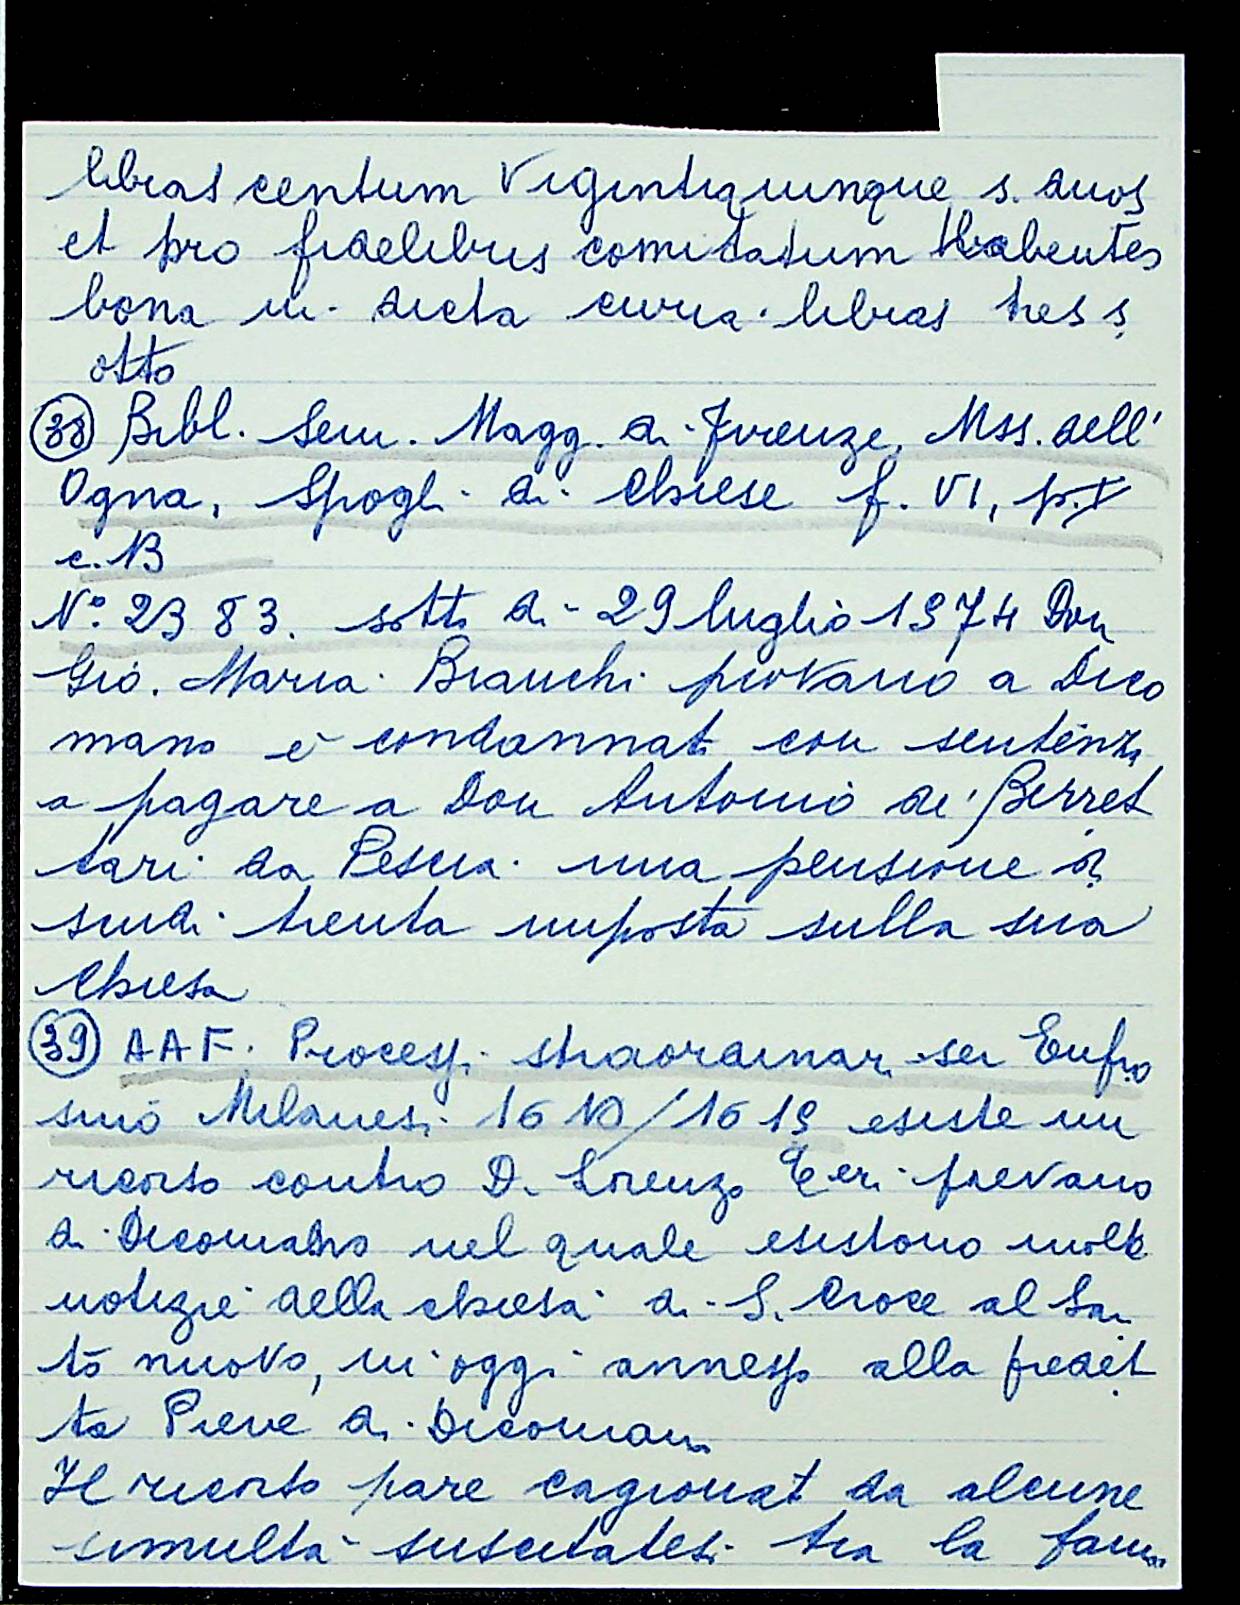 libras centum Vigintiquinque s. duos
et pro fidelibus comitatum habentes
bona in dicta curia libras tres s
otto
(38) Bibl. Sem. Magg. di Firenze, Mss. dell'
Ogna, Spogli di Chiese f. VI, p. I
c. 13
N° 2383. sotto di 29 luglio 1574 Don
Gio. Maria Bianchi piovano a Dico
mano è condannato con sentenza
a pagare a Don Antonio di Berret
tari da Pescia una pensione di
scudi trenta imposta sulla sua
Chiesa
(39) AAF. Processi straordinari ser Eufro
sino Milanesi 1610/1619 esiste un
ricorso contro D. Lorenzo Geri pievano
di Dicomano nel quale esistono molte
notizie della chiesa di S. Croce al San
to nuovo, in oggi annesso alla predet
ta Pieve di Dicomano
Il ricorso pare cagionato da alcune
simultà suscitatesi tra la fam.